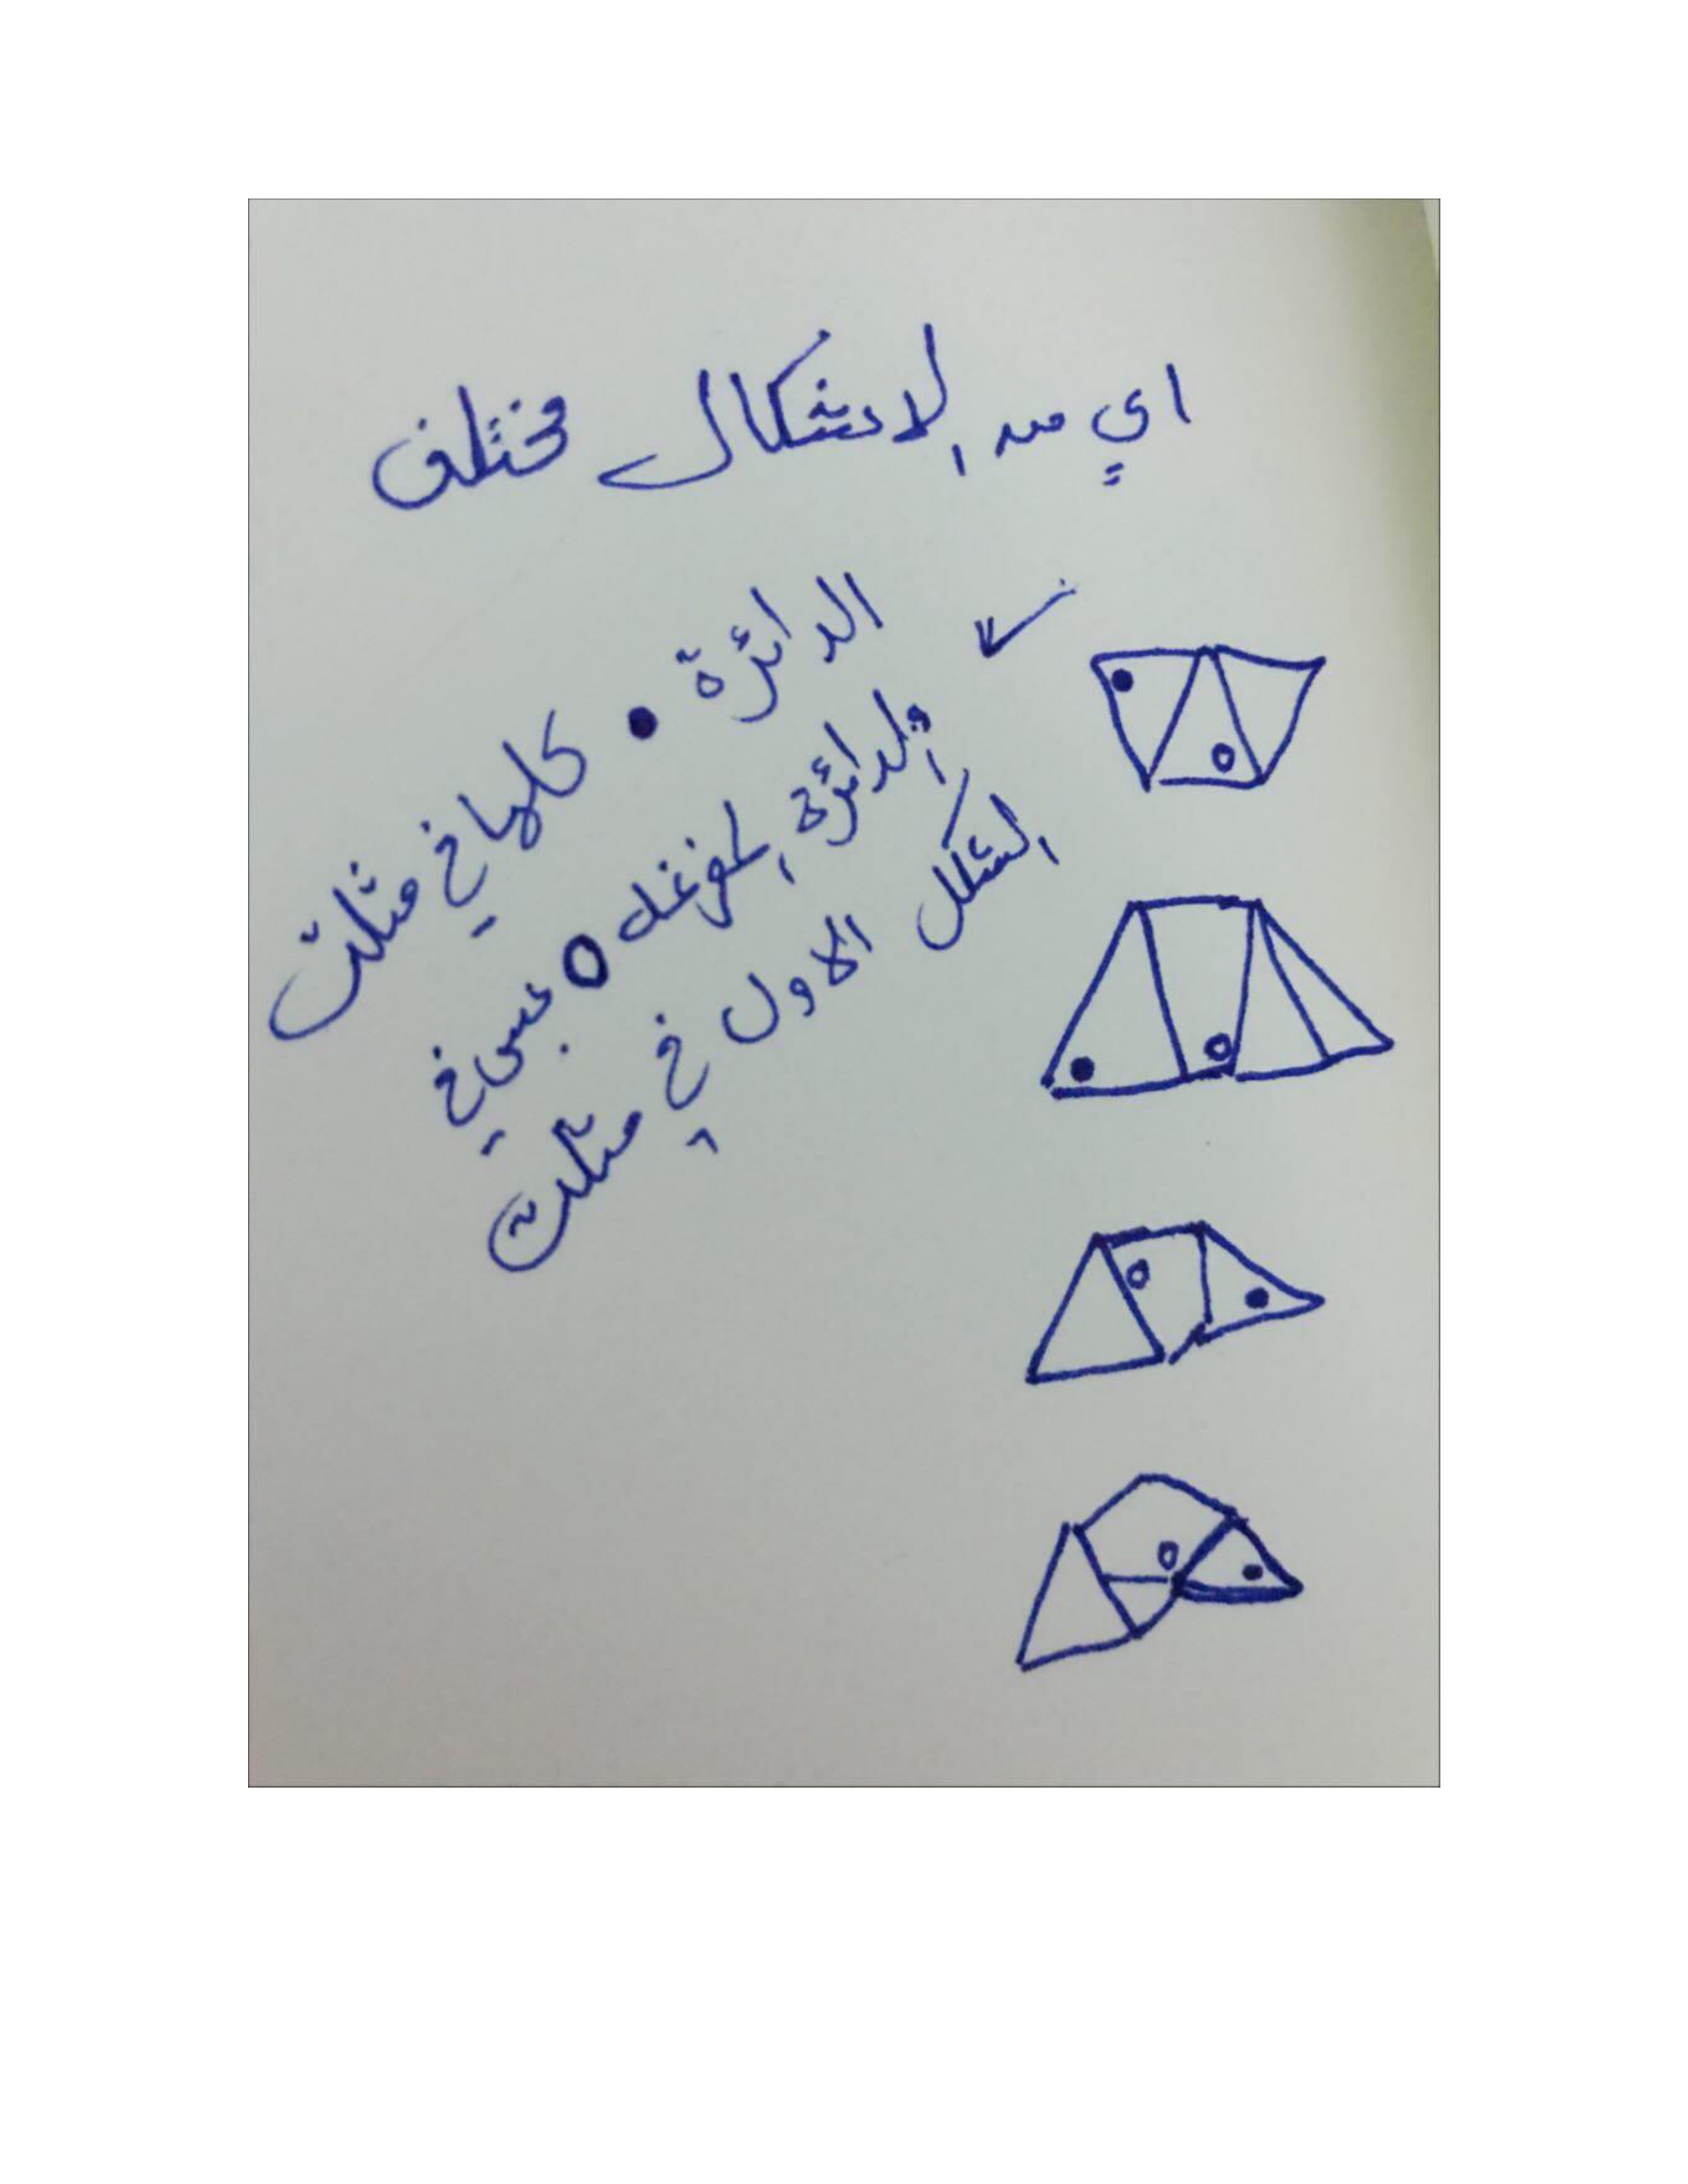 اي من الاشكال مختلف
الدائرة ● كلها في مثلث
والدائرة المفرغه O بس في
الشكل الاول في مثلث